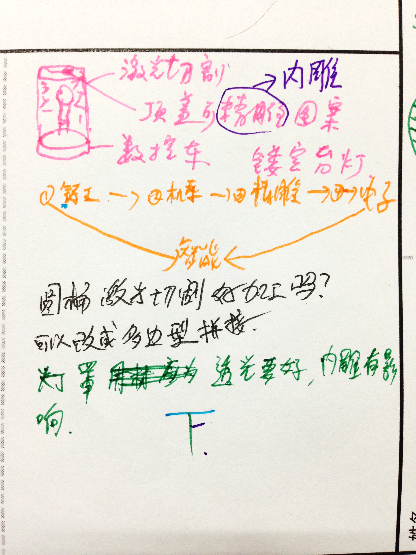 激光切割
内雕
顶盖可精雕图案
数控车
镂空台灯
①钳工→②机车→③精雕→④电子
智能
圆桶激光切割好加工吗？
可以改成多边型拼接.
灯罩 透光要好，内雕有影
响.
下.